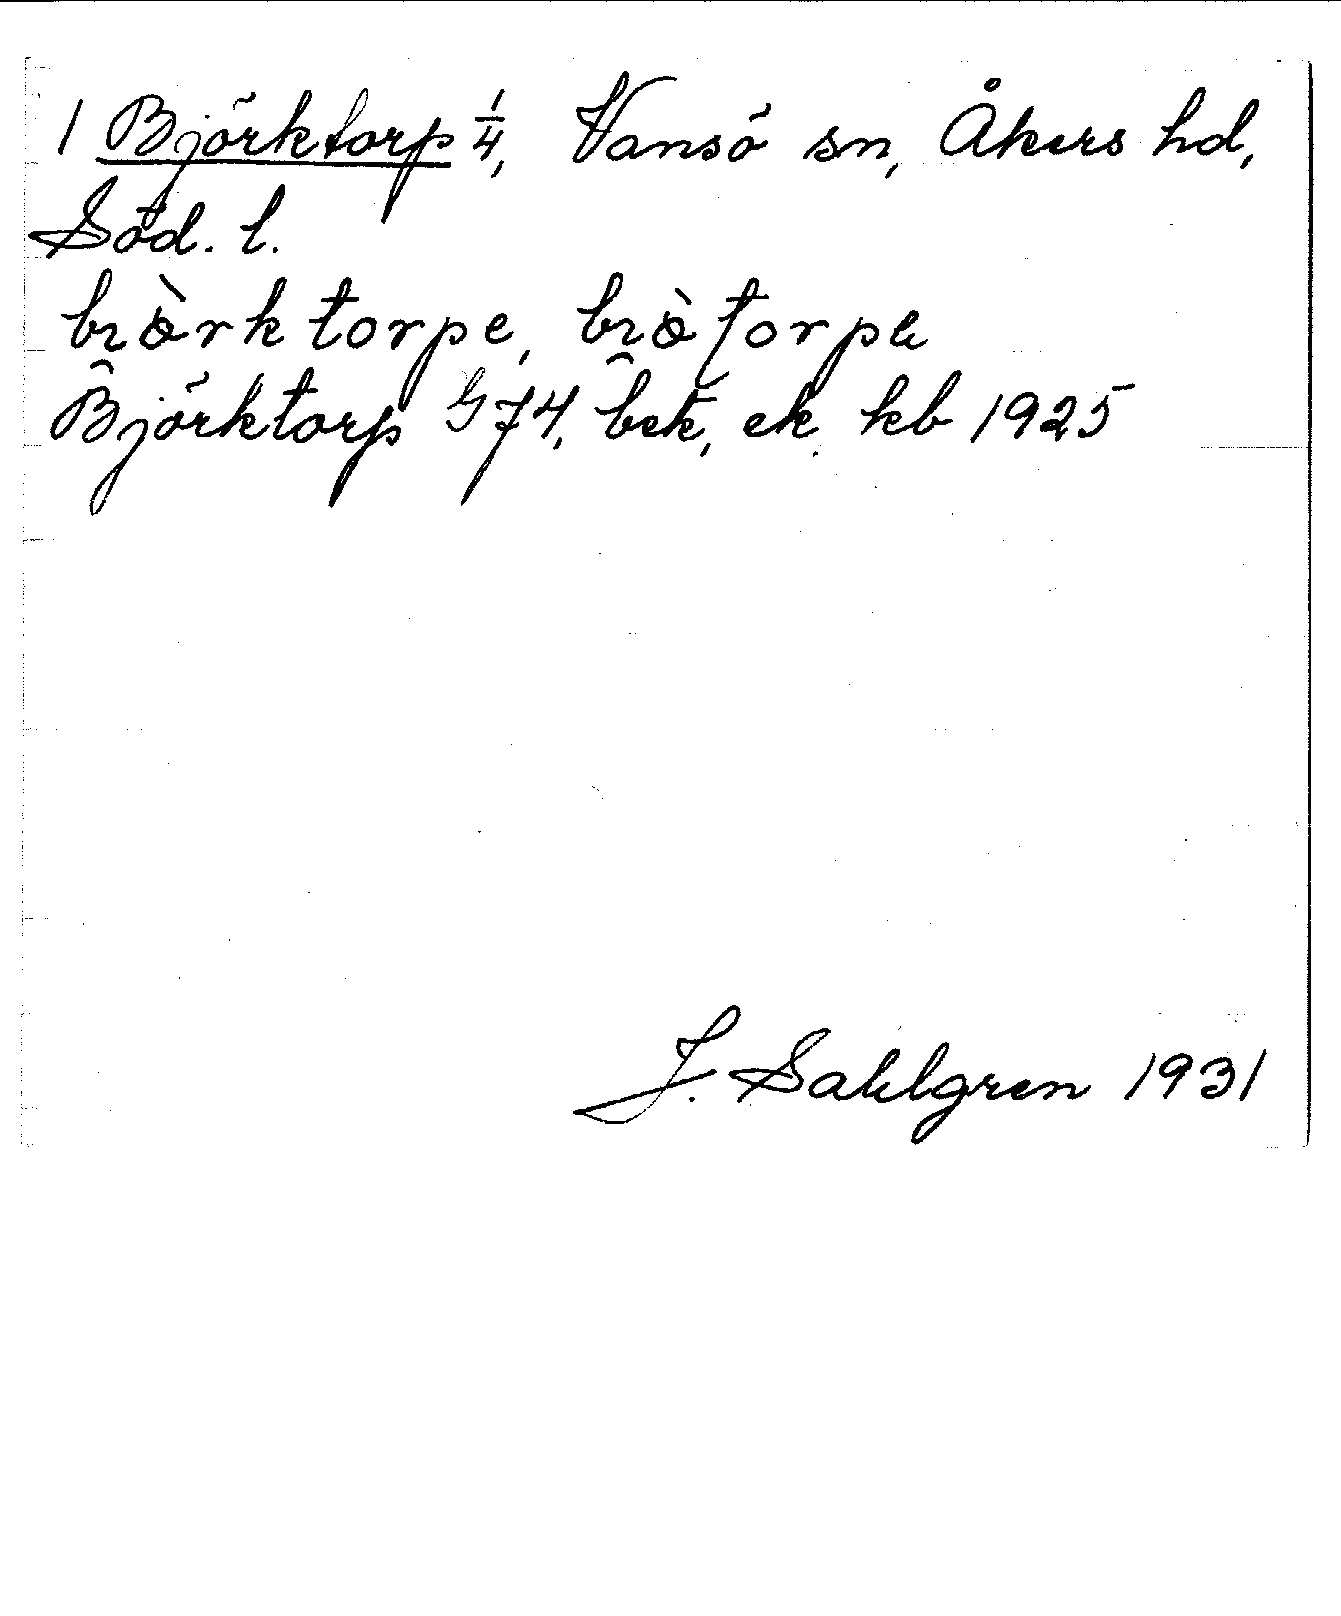 1 Björktorp 1/4, Vansö sn, Åkers hd,
Söd. l.
bi̯ɵ̀rktorpe, bi̯ɵ̀ʈorpe
Björktorp G 74, bek, ek. kb 1925
J. Sahlgren 1931